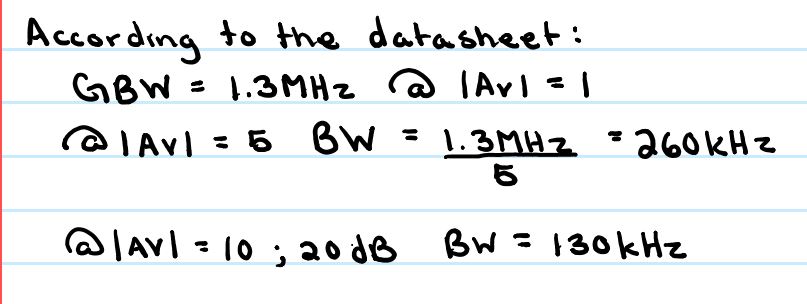 According to the datasheet:
GBW = 1.3MHz @ |Av| = 1
@ |Av| = 5 BW = 1.3MHz / 5 = 260kHz
@ |Av| = 10 ; 20dB BW = 130kHz